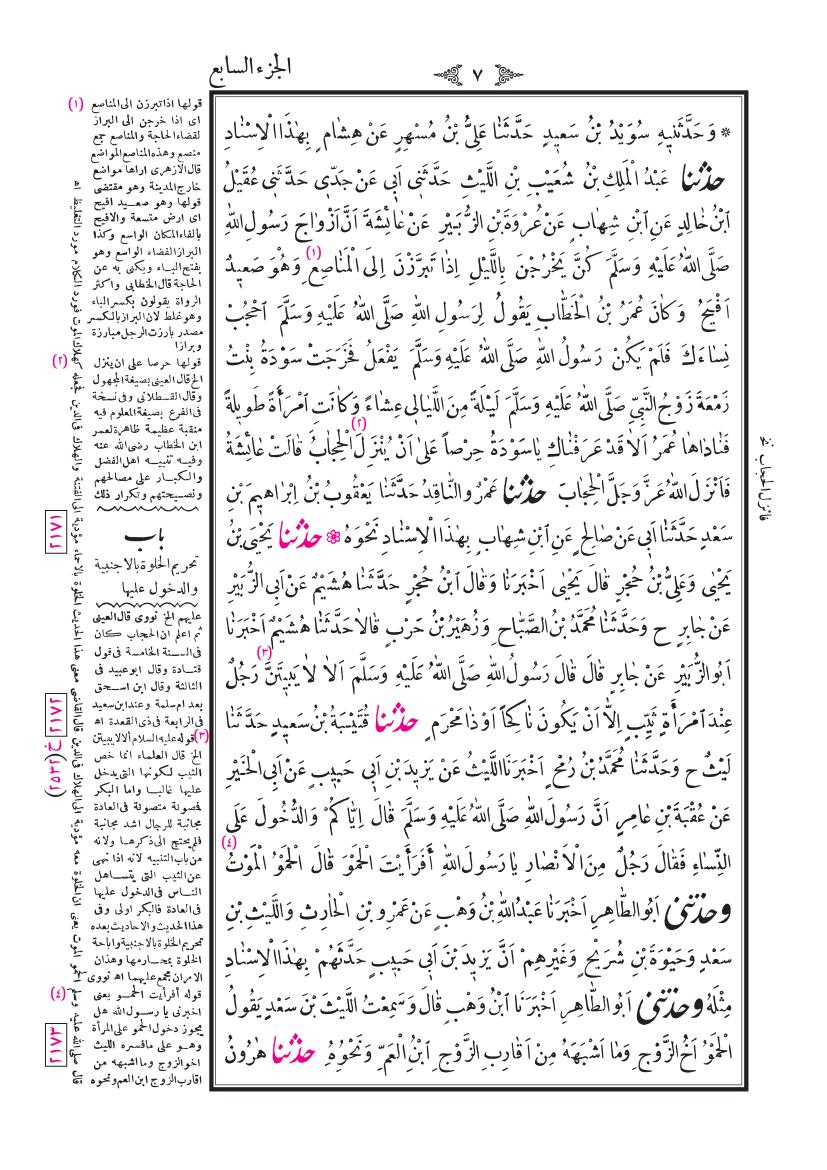 الجزء السابع
٧
* وَحَدَّثَنِيهِ سُوَيْدُ بْنُ سَعِيدٍ حَدَّثَنَا عَلِيُّ بْنُ مُسْهِرٍ عَنْ هِشَامٍ بِهٰذَا الْاِسْنَادِ
حَدَّثَنَا عَبْدُ الْمَلِكِ بْنُ شُعَيْبِ بْنِ اللَّيْثِ حَدَّثَنِى اَبِى عَنْ جَدِّى حَدَّثَنِى عُقَيْلُ
ابْنُ خَالِدٍ عَنِ ابْنِ شِهَابٍ عَنْ عُرْوَةَ بْنِ الزُّبَيْرِ عَنْ عَائِشَةَ اَنَّ اَزْوَاجَ رَسُولِ اللهِ
صَلَّى اللهُ عَلَيْهِ وَسَلَّمَ كُنَّ يَخْرُجْنَ بِاللَّيْلِ اِذَا تَبَرَّزْنَ اِلَى الْمَنَاصِعِ (١) وَهُوَ صَعِيدٌ
اَفْيَحُ وَكَانَ عُمَرُ بْنُ الْخَطَّابِ يَقُولُ لِرَسُولِ اللهِ صَلَّى اللهُ عَلَيْهِ وَسَلَّمَ اَحْجُبْ
نِسَاءَكَ فَلَمْ يَكُنْ رَسُولُ اللهِ صَلَّى اللهُ عَلَيْهِ وَسَلَّمَ يَفْعَلُ فَخَرَجَتْ سَوْدَةُ بِنْتُ
زَمْعَةَ زَوْجُ النَّبِيِّ صَلَّى اللهُ عَلَيْهِ وَسَلَّمَ لَيْلَةً مِنَ اللَّيَالِى عِشَاءً وَكَانَتِ امْرَأَةً طَوِيلَةً
فَنَادَاهَا عُمَرُ اَلَا قَدْ عَرَفْنَاكِ يَا سَوْدَةُ حِرْصاً عَلَى اَنْ يُنْزَلَ (٢) الْحِجَابُ قَالَتْ عَائِشَةُ
فَاَنْزَلَ اللهُ عَزَّ وَجَلَّ الْحِجَابَ حَدَّثَنَا عَمْرٌو النَّاقِدُ حَدَّثَنَا يَعْقُوبُ بْنُ اِبْرَاهِيمَ بْنِ
سَعْدٍ حَدَّثَنَا اَبِى عَنْ صَالِحٍ عَنِ ابْنِ شِهَابٍ بِهٰذَا الْاِسْنَادِ نَحْوَهُ * حَدَّثَنَا يَحْيَى بْنُ
يَحْيٰى وَعَلِيُّ بْنُ حُجْرٍ قَالَ يَحْيٰى اَخْبَرَنَا وَقَالَ ابْنُ حُجْرٍ حَدَّثَنَا هُشَيْمٌ عَنْ اَبِى الزُّبَيْرِ
عَنْ جَابِرٍ ح وَحَدَّثَنَا مُحَمَّدُ بْنُ الصَّبَّاحِ وَزُهَيْرُ بْنُ حَرْبٍ قَالَا حَدَّثَنَا هُشَيْمٌ اَخْبَرَنَا
اَبُو الزُّبَيْرِ عَنْ جَابِرٍ قَالَ قَالَ رَسُولُ اللهِ صَلَّى اللهُ عَلَيْهِ وَسَلَّمَ اَلَا لَا يَبِيتَنَّ (٣) رَجُلٌ
عِنْدَ امْرَأَةٍ ثَيِّبٍ اِلَّا اَنْ يَكُونَ نَاكِحاً اَوْ ذَا مَحْرَمٍ حَدَّثَنَا قُتَيْبَةُ بْنُ سَعِيدٍ حَدَّثَنَا
لَيْثٌ ح وَحَدَّثَنَا مُحَمَّدُ بْنُ رُمْحٍ اَخْبَرَنَا اللَّيْثُ عَنْ يَزِيدَ بْنِ اَبِى حَبِيبٍ عَنْ اَبِى الْخَيْرِ
عَنْ عُقْبَةَ بْنِ عَامِرٍ اَنَّ رَسُولَ اللهِ صَلَّى اللهُ عَلَيْهِ وَسَلَّمَ قَالَ اِيَّاكُمْ وَالدُّخُولَ عَلَى
النِّسَاءِ فَقَالَ رَجُلٌ مِنَ الْاَنْصَارِ يَا رَسُولَ اللهِ أَفَرَأَيْتَ الْحَمْوَ قَالَ الْحَمْوُ الْمَوْتُ (٤)
وَحَدَّثَنِى اَبُو الطَّاهِرِ اَخْبَرَنَا عَبْدُ اللهِ بْنُ وَهْبٍ عَنْ عَمْرِو بْنِ الْحَارِثِ وَاللَّيْثِ بْنِ
سَعْدٍ وَحَيْوَةَ بْنِ شُرَيْحٍ وَغَيْرِهِمْ اَنَّ يَزِيدَ بْنَ اَبِى حَبِيبٍ حَدَّثَهُمْ بِهٰذَا الْاِسْنَادِ
مِثْلَهُ وَحَدَّثَنِى اَبُو الطَّاهِرِ اَخْبَرَنَا ابْنُ وَهْبٍ قَالَ وَسَمِعْتُ اللَّيْثَ بْنَ سَعْدٍ يَقُولُ
الْحَمْوُ اَخُ الزَّوْجِ وَمَا اَشْبَهَهُ مِنْ اَقَارِبِ الزَّوْجِ ابْنُ الْعَمِّ وَنَحْوُهُ حَدَّثَنَا هٰرُونُ
(١) قولها اذا تبرزن الى المناصع
اى اذا خرجن الى البراز
لقضاء الحاجة والمناصع جمع
منصع وهذه المناصع المواضع
قال الازهرى اراها مواضع
خارج المدينة وهو مقتضى
قولها وهو صعيد افيح
اى ارض متسعة والافيح
بالفاء المكان الواسع وكذا
البراز الفضاء الواسع وهو
بفتح الباء ويكنى به عن
الحاجة قال الخطابى واكثر
الرواة يقولون بكسر الباء
وهو غلط لان البراز بالكسر
مصدر بارزت الرجل مبارزة
وبرازا
(٢) قولها حرصا على ان ينزل
الخ قال العينى بصيغة المجهول
وقال القسطلانى وفى نسخة
فى الفرع بصيغة المعلوم فيه
منقبة عظيمة ظاهرة لعمر
ابن الخطاب رضى الله عنه
وفيه تنبيه اهل الفضل
والكبار على مصالحهم
ونصيحتهم وتكرار ذلك
٢١٧١
باب
تحريم الخلوة بالاجنبية
والدخول عليها
عليهم الخ نووى قال العينى
ثم اعلم ان الحجاب كان
فى السنة الخامسة فى قول
قتادة وقال ابو عبيد فى
الثالثة وقال ابن اسحق
بعد ام سلمة وعند ابن سعيد
فى الرابعة فى ذى القعدة اه
(٣) قوله عليه السلام ألا لا يبيتن
الخ قال العلماء انما خص
الثيب لكونها التى يدخل
عليها غالبا واما البكر
فمصونة متصونة فى العادة
مجانبة للرجال اشد مجانبة
فلم يحتج الى ذكرها ولانه
من باب التنبيه لانه اذا نهى
عن الثيب التى يتساهل
الناس فى الدخول عليها
فى العادة فالبكر اولى وفى
هذا الحديث والاحاديث بعده
تحريم الخلوة بالاجنبية واباحة
الخلوة بمحارمها وهذان
الامران مجمع عليهما اه نووى
(٤) قوله أفرأيت الحمو يعنى
اخبرنى يا رسول الله هل
يجوز دخول الحمو على المرأة
وهو على ما فسره الليث
اخو الزوج وما اشبهه من
اقارب الزوج ابن العم ونحوه
٢١٧٢
خ (٢٥٣)
٢١٧٣
قال صلى الله عليه وسلم الحمو الموت يعنى ان الخلوة معه مؤدية الى الهلاك فى الدين قال القاضى معنى هذا الحديث الخلوة بالاحماء مؤدية الى الفتنة والهلاك فى الدين فجعله كهلاك الموت فورد الكلام مورد التغليظ اه
فانزل الحجاب نخ